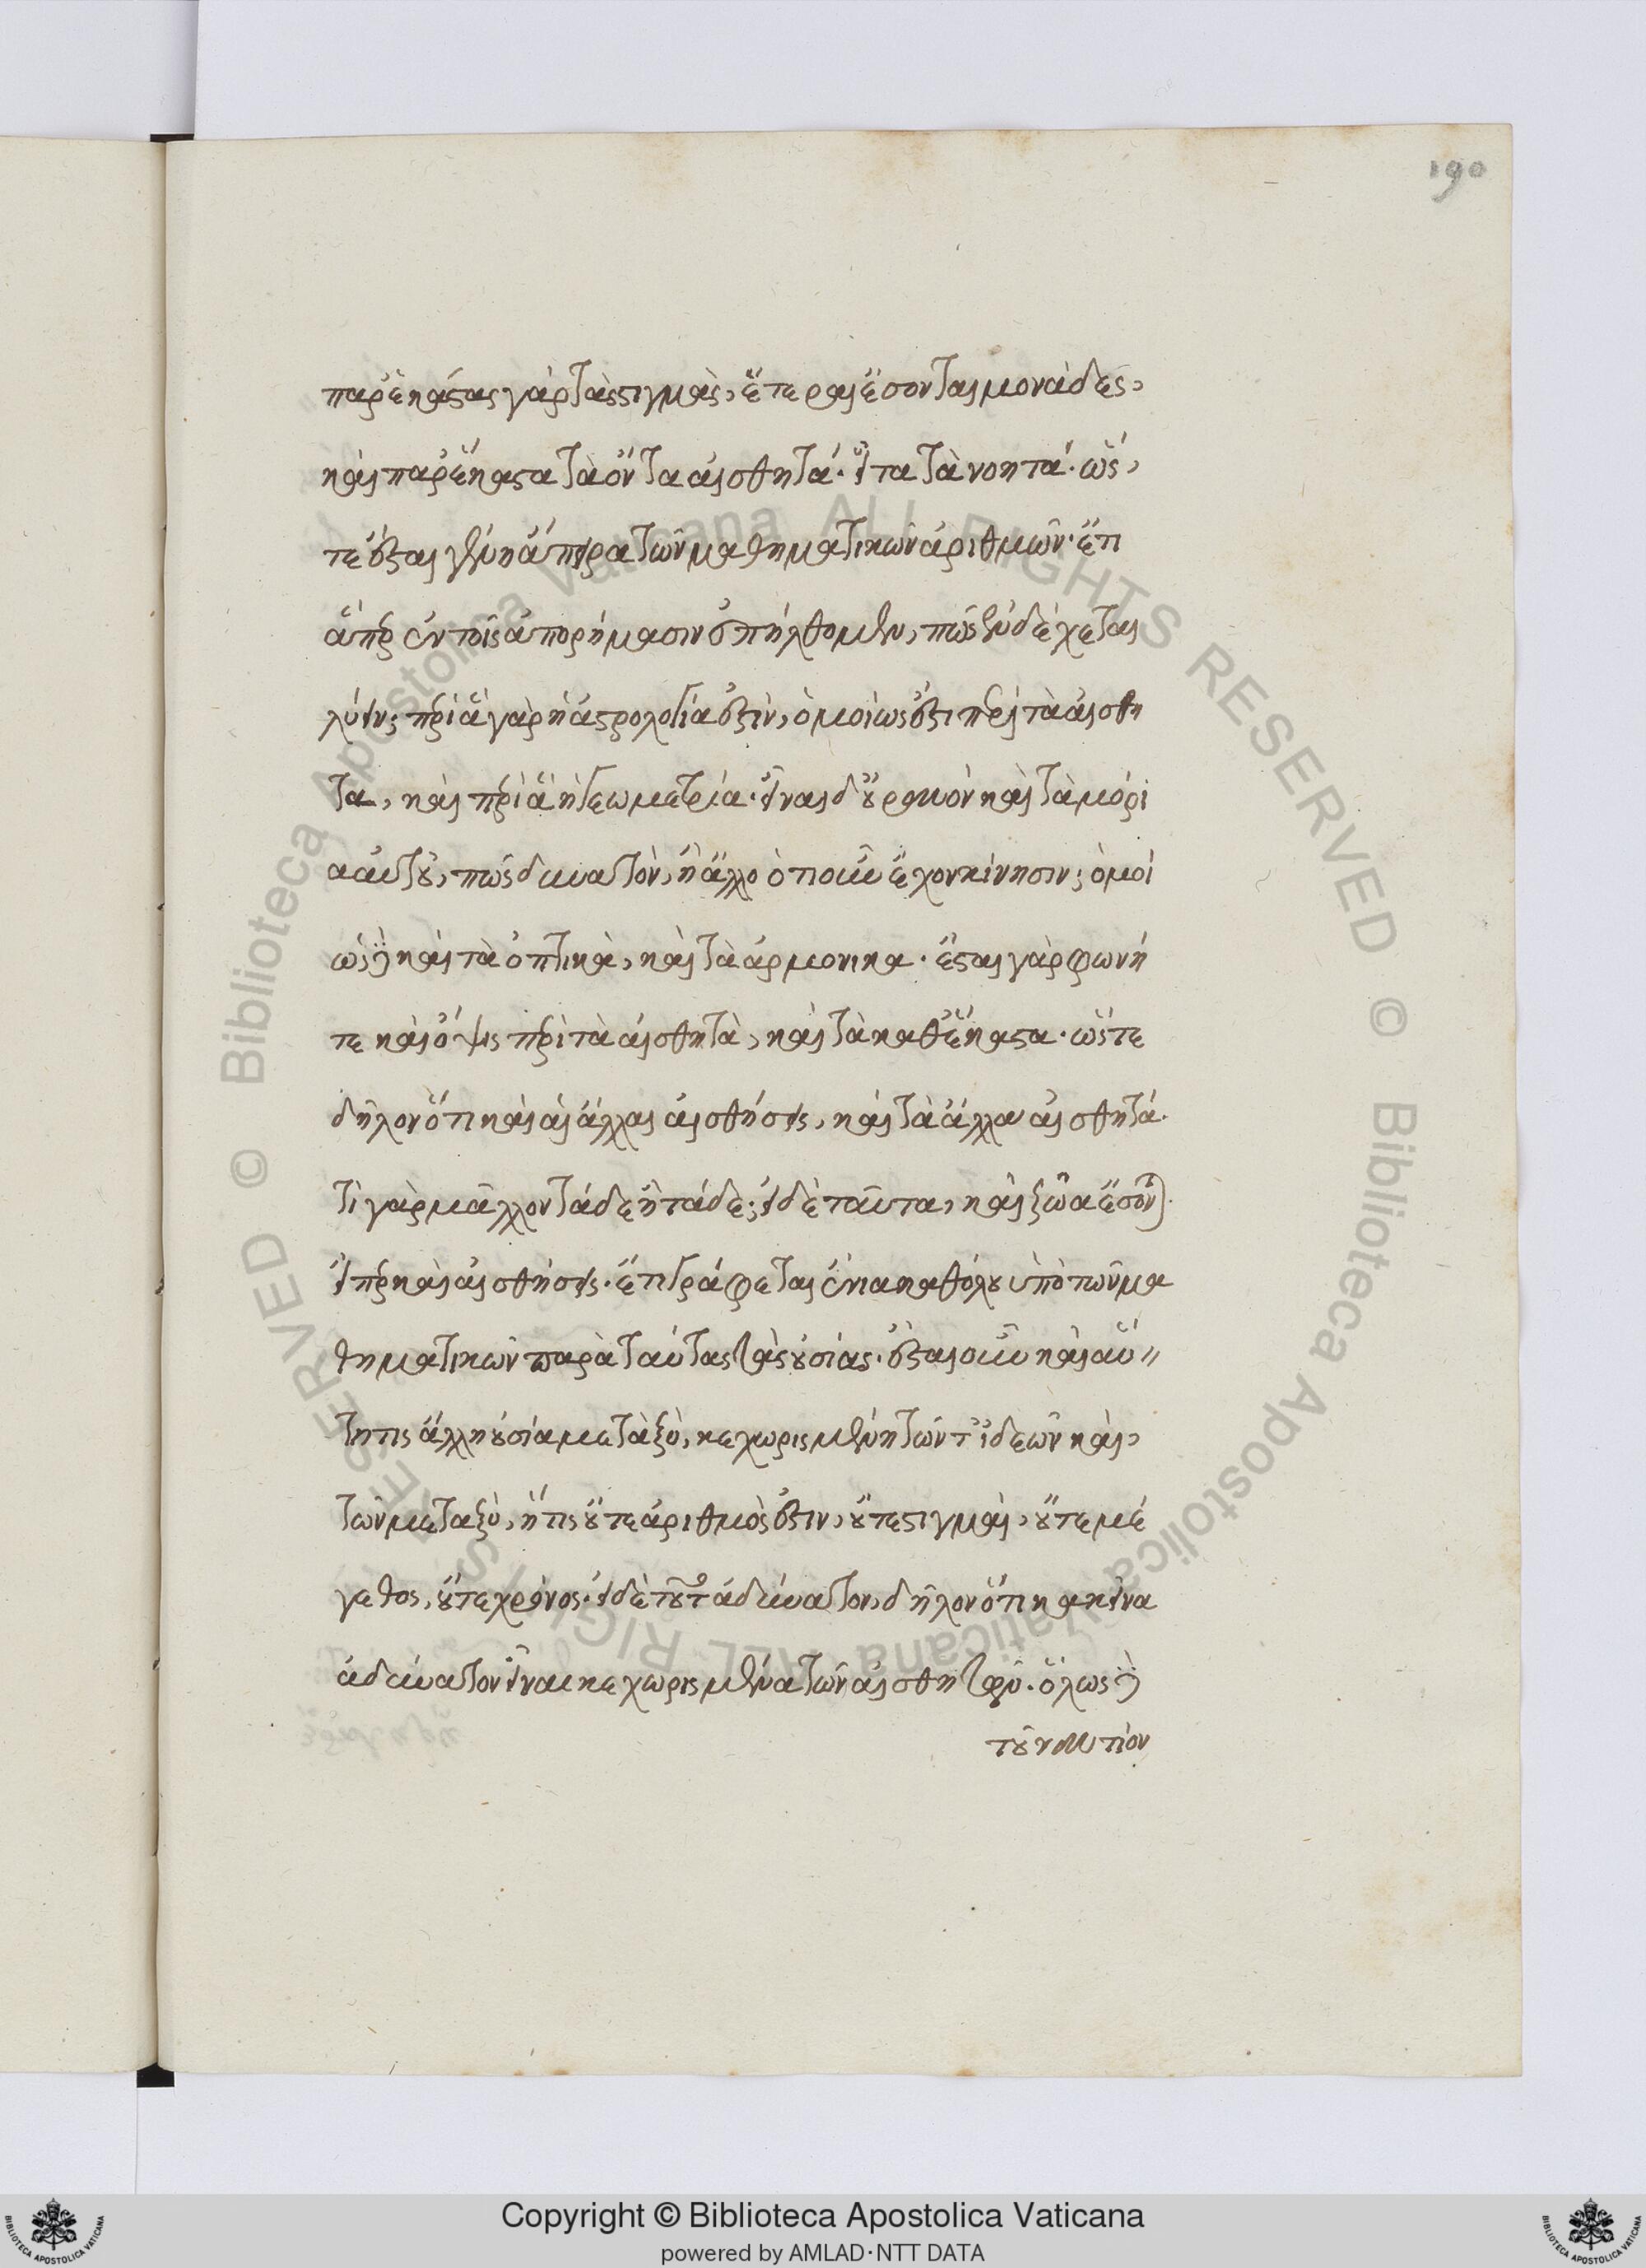 190
παρ' ἑκάστας γὰρ τὰς στιγμὰς, ἕτεραι ἔσονται μονάδες,
καὶ παρ' ἕκαστα τὰ ὄντα αἰσθητά· εἶτα τὰ νοητά· ὥς,
τε ἔσται γένη ἄπειρα τῶν μαθηματικῶν ἀριθμῶν· ἔτι
ἅπερ ἐν τοῖς ἀπορήμασιν ἐπήλθομεν, πῶς ἐνδέχεται
λύειν; περὶ ἃ γὰρ ἡ ἀστρολογία ἐστὶν, ὁμοίως ἔσται περὶ τὰ αἰσθη
τα, καὶ περὶ ἃ ἡ γεωμετρία· εἶναι δ' οὐρανὸν καὶ τὰ μόρι
α αὐτοῦ, πῶς δυνατὸν, ἢ ἄλλο ὁτιοῦν ἔχον κίνησιν; ὁμοί
ως δὲ καὶ τὰ ὀπτικὰ, καὶ τὰ ἁρμονικα· ἔσται γὰρ φωνή
τε καὶ ὄψις περὶ τὰ αἰσθητὰ, καὶ τὰ καθ' ἕκαστα· ὥστε
δῆλον ὅτι καὶ αἱ ἄλλαι αἰσθήσεις, καὶ τὰ ἄλλα αἰσθητά·
τί γὰρ μᾶλλον τάδε ἢ τάδε; εἰ δὲ ταῦτα, καὶ ζῶα ἔσονται·
εἴπερ καὶ αἰσθήσεις· ἔτι γράφεται ἔνια καθόλου ὑπὸ τῶν μα
θηματικῶν παρὰ ταύτας τὰς οὐσίας· ἔσται οὖν καὶ αὕ〃
τη τις ἄλλη οὐσία μεταξὺ, κεχωρισμένη τῶν τ' ἰδεῶν καὶ,
τῶν μεταξὺ, ἥτις οὔτε ἀριθμὸς ἐστιν, οὔτε στιγμαὶ, οὔτε μέ
γεθος, οὔτε χρόνος· εἰ δὲ τοῦτ' ἀδύνατον, δῆλον ὅτι κακεῖνα
ἀδύνατον εἶναι κεχωρισμένα τῶν αἰσθητῶν· ὅλως δὲ
τοὐναντίον
Copyright © Biblioteca Apostolica Vaticana
powered by AMLAD·NTT DATA